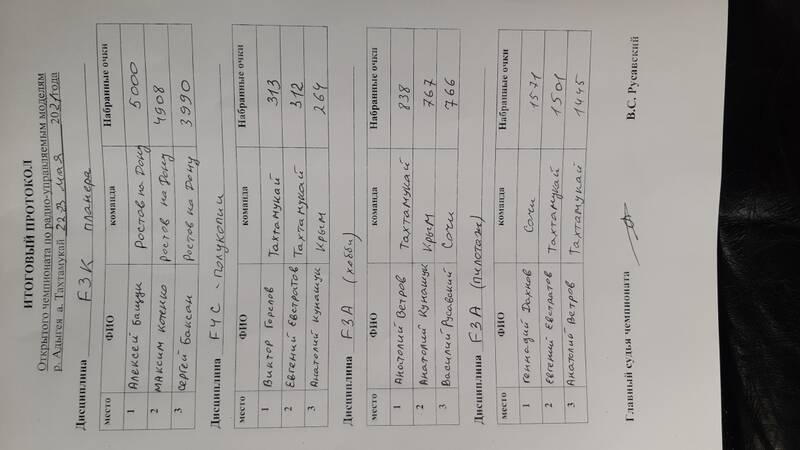 ИТОГОВЫЙ ПРОТОКОЛ
Открытого чемпионата по радио-управляемым моделям
р. Адыгея а. Тахтамукай 22-23 мая 2021 года
Дисциплина F3K планера
место ФИО команда Набранные очки
1 Алексей Ростов на Дону 5000
2 Максим Коженко Ростов на Дону 4908
3 Сергей Баксан Ростов на Дону 3990
Дисциплина F4C - полукопии
место ФИО команда Набранные очки
1 Виктор Горелов Тахтамукай 313
2 Евгений Евстратов Тахтамукай 312
3 Анатолий Кунашук Крым 264
Дисциплина F3A (хобби)
место ФИО команда Набранные очки
1 Анатолий Ветров Тахтамукай 838
2 Анатолий Кунашук Крым 767
3 Василий Русавский Сочи 766
Дисциплина F3A (пилотаж)
место ФИО команда Набранные очки
1 Геннадий Дахнов Сочи 1571
2 Евгений Евстратов Тахтамукай 1501
3 Анатолий Ветров Тахтамукай 1445
Главный судья чемпионата В.С. Русавский